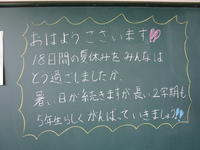 おはようございます
18日間の夏休みをみんなは
どう過ごしましたか。
暑い日が続きますが長い2学期も
5年生らしくがんばっていきましょう